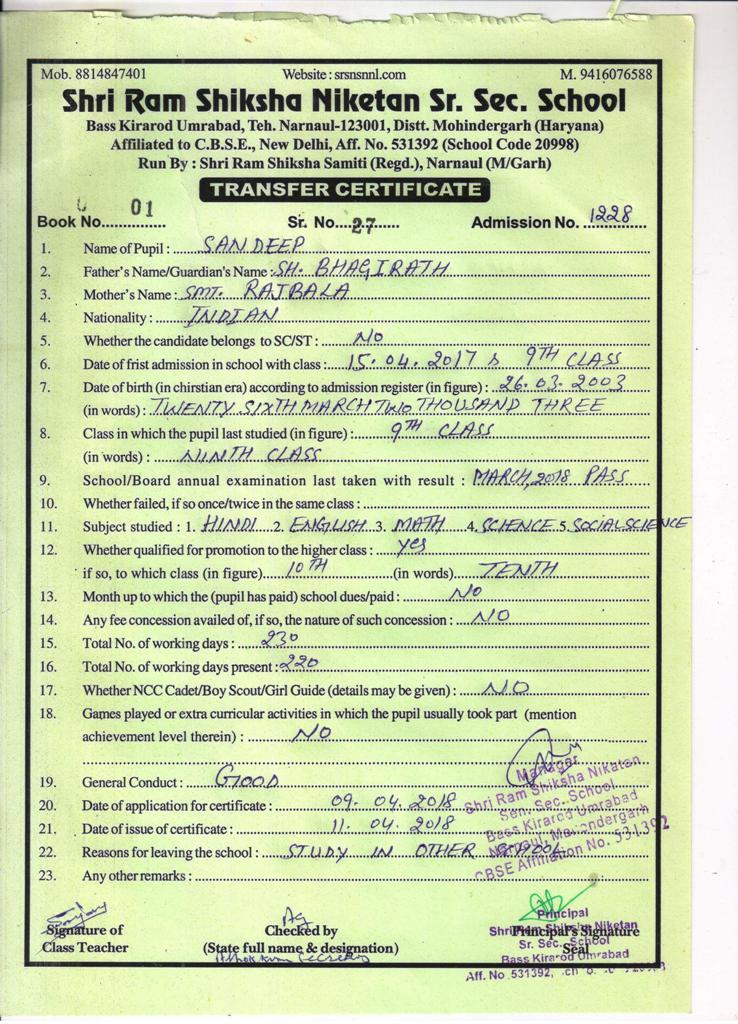 Mob. 8814847401 Website : srsnsnnl.com M. 9416076588
Shri Ram Shiksha Niketan Sr. Sec. School
Bass Kirarod Umrabad, Teh. Narnaul-123001, Distt. Mohindergarh (Haryana)
Affiliated to C.B.S.E., New Delhi, Aff. No. 531392 (School Code 20998)
Run By : Shri Ram Shiksha Samiti (Regd.), Narnaul (M/Garh)
TRANSFER CERTIFICATE
Book No. 01 Sr. No. 27 Admission No. 1228
1. Name of Pupil : SANDEEP
2. Father's Name/Guardian's Name : SH. BHAGIRATH
3. Mother's Name : SMT. RAJBALA
4. Nationality : INDIAN
5. Whether the candidate belongs to SC/ST : NO
6. Date of frist admission in school with class : 15.04.2017 & 9TH CLASS
7. Date of birth (in chirstian era) according to admission register (in figure) : 26.03.2003
(in words) : TWENTY SIXTH MARCH TWO THOUSAND THREE
8. Class in which the pupil last studied (in figure) : 9TH CLASS
(in words) : NINTH CLASS
9. School/Board annual examination last taken with result : MARCH, 2018 PASS
10. Whether failed, if so once/twice in the same class :
11. Subject studied : 1. HINDI 2. ENGLISH 3. MATH 4. SCIENCE 5. SOCIAL SCIENCE
12. Whether qualified for promotion to the higher class : Yes
if so, to which class (in figure) 10TH (in words) TENTH
13. Month up to which the (pupil has paid) school dues/paid : NO
14. Any fee concession availed of, if so, the nature of such concession : NO
15. Total No. of working days : 230
16. Total No. of working days present : 220
17. Whether NCC Cadet/Boy Scout/Girl Guide (details may be given) : NO
18. Games played or extra curricular activities in which the pupil usually took part (mention
achievement level therein) : NO
Manager
Shri Ram Shiksha Niketan
Sen. Sec. School
Bass Kirarod Umrabad
Narnaul, Mahendergarh
CBSE Affiliation No. 531392
19. General Conduct : GOOD
20. Date of application for certificate : 09.04.2018
21. Date of issue of certificate : 11.04.2018
22. Reasons for leaving the school : STUDY IN OTHER SCHOOL
23. Any other remarks :
Signature of Checked by Principal's Signature
Class Teacher (State full name & designation) Seal
Principal
Shri Ram Shiksha Niketan
Sr. Sec. School
Bass Kirarod Umrabad
Aff. No 531392,